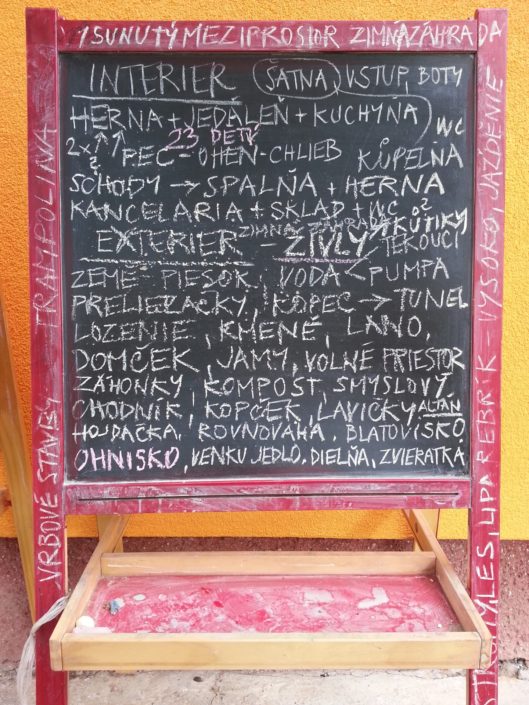 VYSUNUTÝ MEZIPROSTOR ZIMNÁ ZÁHRADA
INTERIER ŠATNA, VSTUP, BOTY
HERNA + JEDALEŇ + KUCHYŇA
WC
23 DETÍ
2x?
PEC - OHEŇ - CHLIEB KÚPEĽŇA
SCHODY → SPALŇA + HERNA
KANCELARIA + SKLAD + WC
ZIMNÁ ZÁHRADA KÚTIKY
EXTERIER - ŽIVLY TEKOUCÍ
ZEMĚ - PIESOK, VODA < PUMPA
PRELIEZAČKY, KOPEC → TUNEL
LOZENIE, KMENÉ, LANO,
DOMČEK, JAMY, VOLNÉ PRIESTOR
ZÁHONKY, KOMPOST, SMYSLOVÝ
CHODNÍK, KOPČEK, LAVIČKY ALTÁN
HOJDAČKA, ROVNOVÁHA, BLATOVISKO
OHNISKO, VENKU JEDLO, DIELŇA, ZVIERATKÁ
VRBOVÉ STAVBY TRAMPOLINA
STROMY LES, LIPA REBRÍK - VYSOKO, JAZDENIE